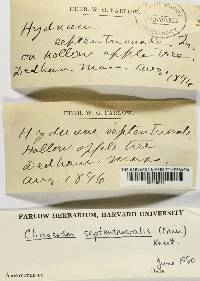 HERB. W. G. FARLOW.
Hydnum
septentrionale. Fr.
on hollow apple tree.
Dedham. Mass. Aug. 1896
HERB. W. G. FARLOW.
Hydnum septentrionale
Hollow apple tree
Dedham. Mass.
Aug 1896
FARLOW HERBARIUM, HARVARD UNIVERSITY
Climacodon septentrionalis (Fries)
Karst.
June 1980
Date
ANNOTATED BY